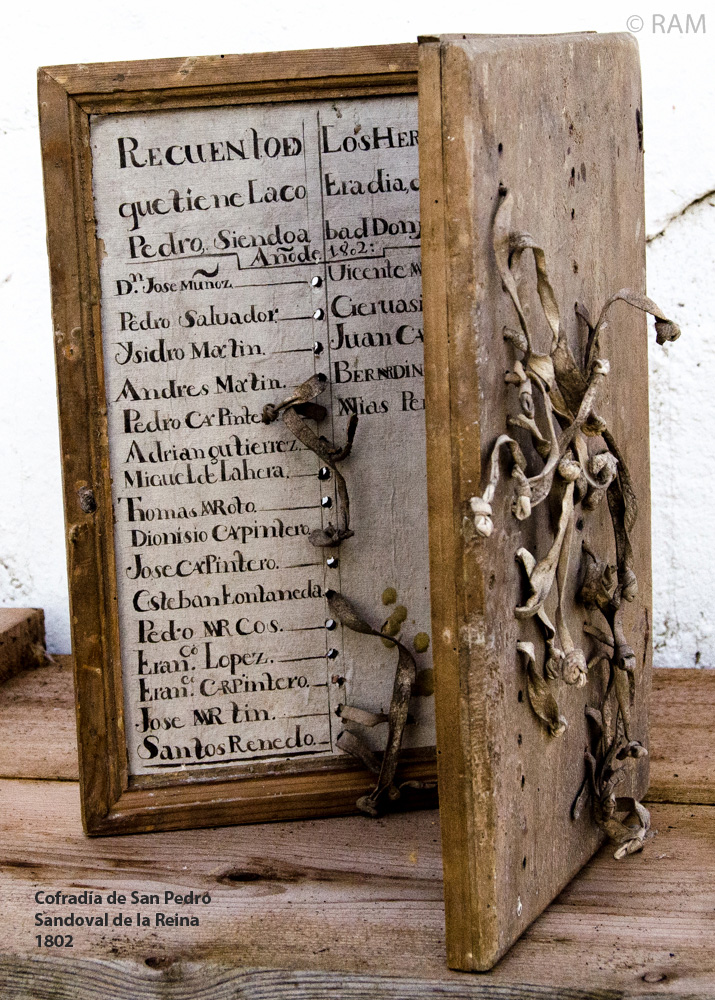 © RAM
RECUENTO D LOS HER
que tiene La co Fradia, d
Pedro, Siendo a bad Don
Año de 1802:
D.ⁿ Jose Muñoz.
Pedro Salvador.
Ysidro Martin.
Andres Martin.
Pedro CARPinte
Adrian gutierrez.
Miguel de Lahera.
Thomas MRoto.
Dionisio CARpintero
Jose CARPintero.
Esteban Fontaneda
Pedro MARCOS.
Fran.ᶜᵒ Lopez.
Fran.ᶜᵒ CARPintero.
Jose MARtin.
Santos Renedo.
Vicente M
Gervasi
Juan CA
BERNARDIN
MAtias Pe
Cofradía de San Pedro
Sandoval de la Reina
1802